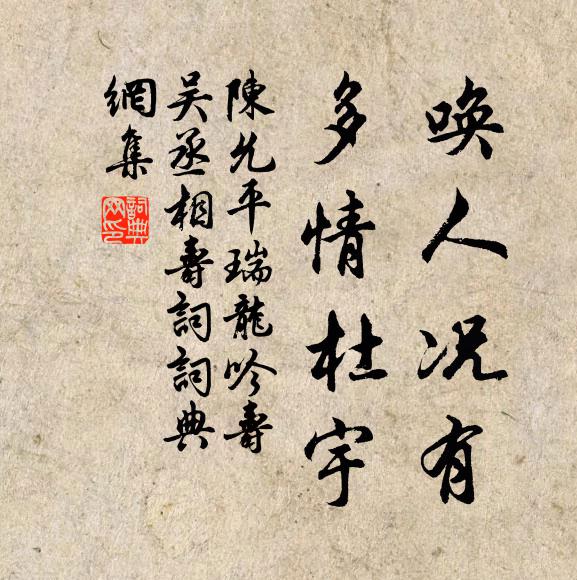 唤人况有
多情杜宇
陳允平瑞龍吟壽
吴丞相壽詞詞典
網集
詞典網印